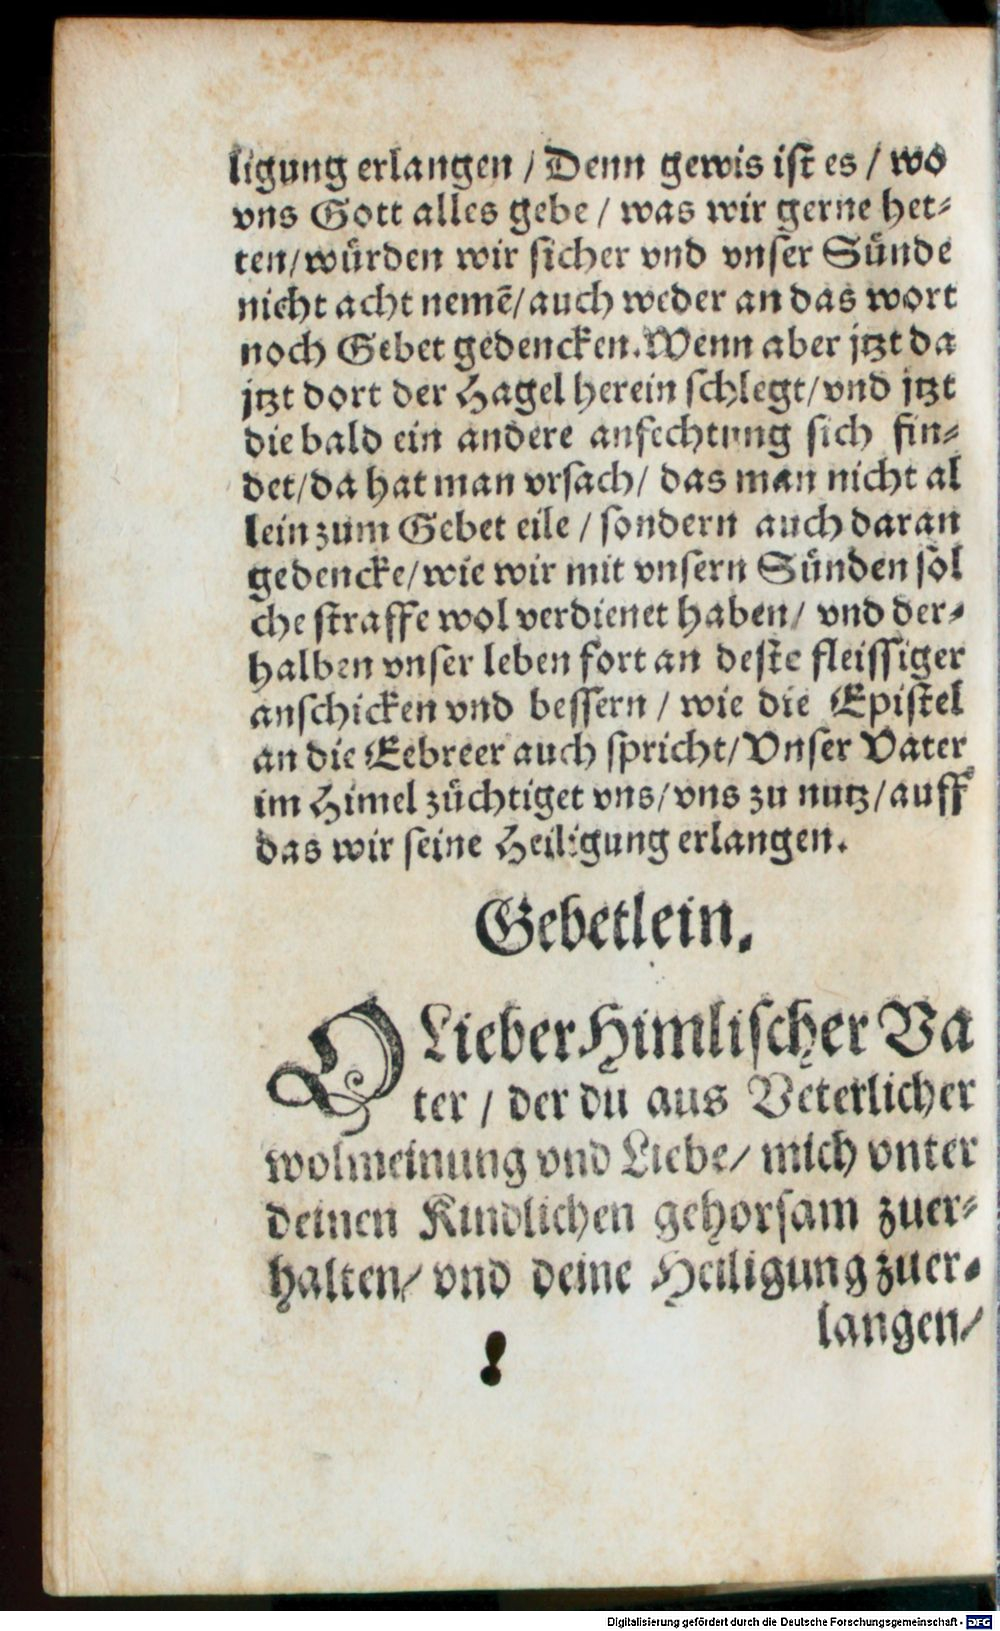 ligung erlangen / Denn gewis ist es / wo
vns Gott alles gebe / was wir gerne het⸗
ten/würden wir sicher vnd vnser Sünde
nicht acht nemē/auch weder an das wort
noch Gebet gedencken.Wenn aber jtzt da
jtzt dort der Hagel herein schlegt/vnd jtzt
die bald ein andere anfechtung sich fin⸗
det/da hat man vrsach/ das man nicht al
lein zum Gebet eile / sondern auch daran
gedencke/wie wir mit vnsern Sünden sol
che straffe wol verdienet haben/ vnd der⸗
halben vnser leben fort an deste fleissiger
anschicken vnd bessern / wie die Epistel
an die Eebreer auch spricht/Vnser Vater
im Himel züchtiget vns/vns zu nutz/auff
das wir seine Heiligung erlangen.
Gebetlein.
O Lieber Himlischer Va
ter / der du aus Veterlicher
wolmeinung vnd Liebe/ mich vnter
deinen Kindlichen gehorsam zuer⸗
halten/ vnd deine Heiligung zuer⸗
langen/
Digitalisierung gefördert durch die Deutsche Forschungsgemeinschaft - DFG